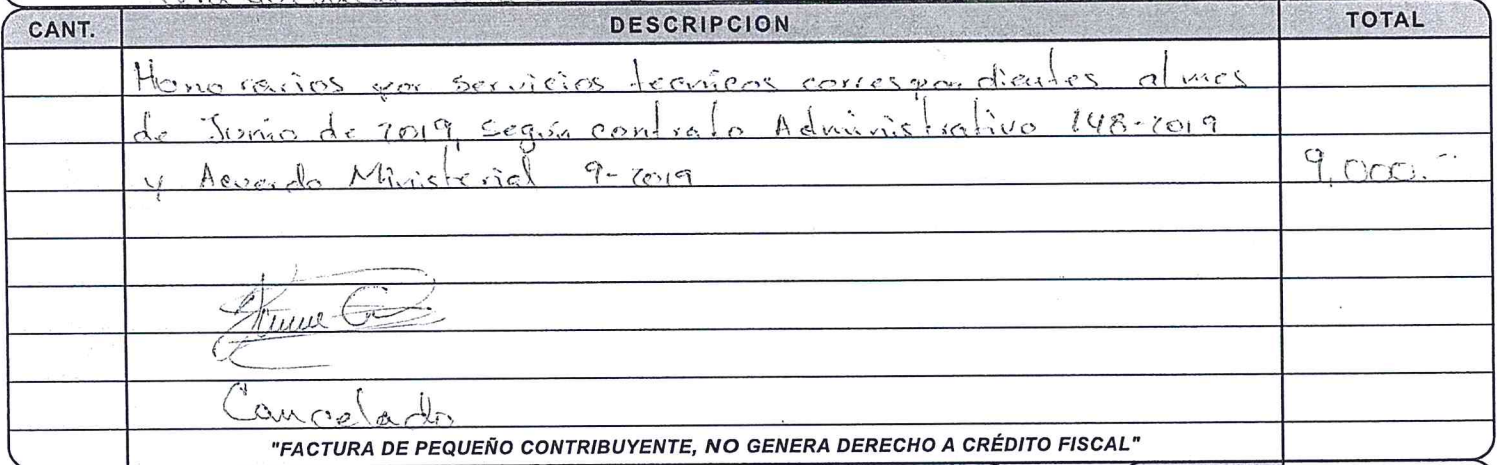 CANT. DESCRIPCION TOTAL
Honorarios por servicios tecnicos correspondientes al mes
de Junio de 2019, según contrato Administrativo 148-2019
y Acuerdo Ministerial 9-2019 9,000.--
Cancelado
"FACTURA DE PEQUEÑO CONTRIBUYENTE, NO GENERA DERECHO A CRÉDITO FISCAL"